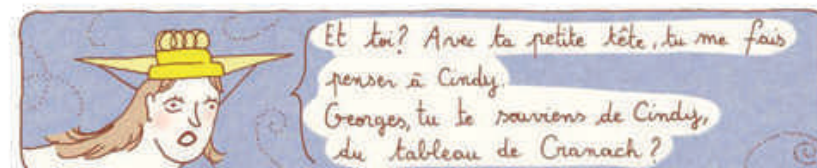 Et toi? Avec ta petite tête, tu me fais
penser à Cindy.
Georges, tu te souviens de Cindy,
du tableau de Cranach?